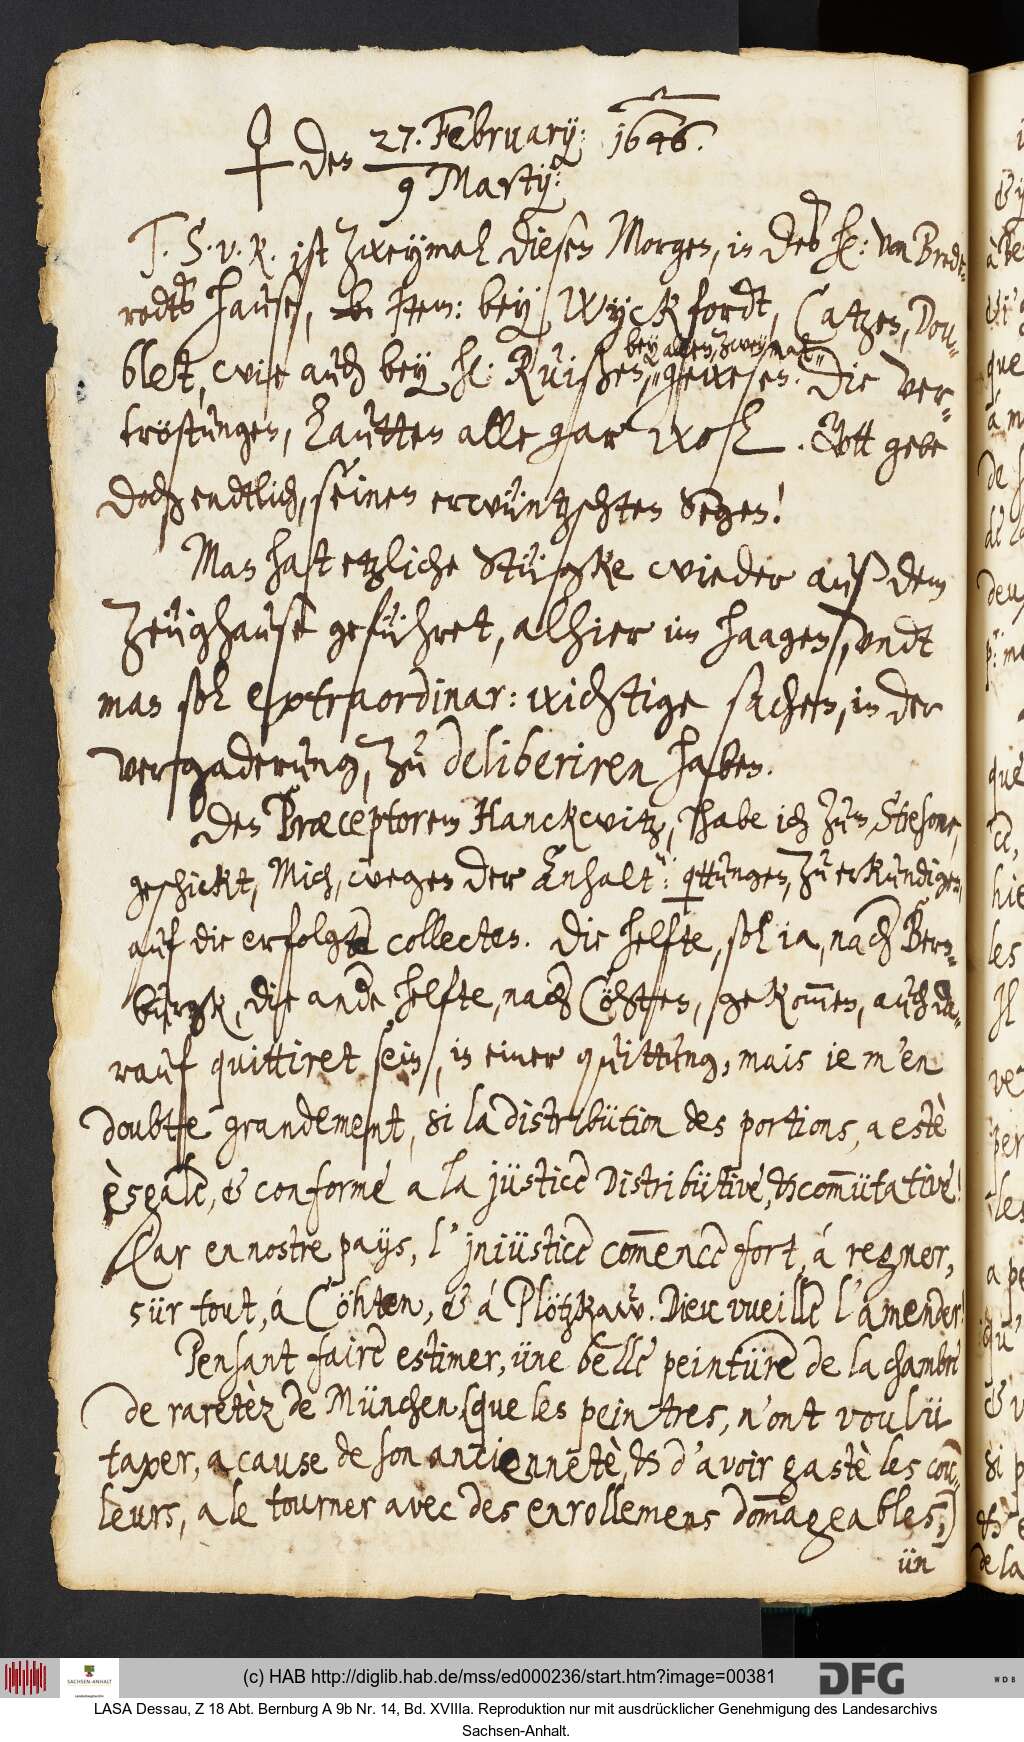 ♀ den 27. February: 1646.
9 Martij:
T. S. v. R. ist Zweymal diesen Morgen, in des H: von Brede¬
rodts Hause, Item: bey Wyckfordt, Catzen, Dou¬
bey allen, zweymal
blet, wie auch bey H: Ruißen, gewesen. Die Ver¬
tröstungen, Lautten alle gar wol. Gott gebe
doch endtlich, seinen erwüntzschten Segen!
Man hat etzliche Stügke wieder auß dem
Zeüghause geführet, alhier im Haagen, undt
man sol extraordinar: wichtige sachen, in der
vergaderung, zu deliberiren haben.
Den Præceptorem Hanckwitz, habe ich zum Stesone,
geschickt, Mich, wegen der Anhalt: quttungen, zu erkundigen,
auf die erfolgte collecten. Die helfte, sol ia, nach Bern¬
burgk, die ande helfte, nach Cöhtten, gekom̄en, auch da¬
rauf quittiret sein, in einer quittung, mais ie m'en
doubte grandement, si la distribütion des portions, a estè
ègale, & conforme a la jüstice Distribütive, & com̄ütative!
Car en nostre pays, l'jnjüstice com̄ence fort, á regner,
sür tout, á Cöhten, & á Plötzkaw. Dieu vueille l'amender!
Pensant faire estimer, üne belle peintüre de la chambre
de raretèz de München (que les peintres, n'ont voulü
taxer, a cause de son anciennetè, & d'avoir gastè les cou¬
leurs, a le tourner avec des enrollemens dom̄ageables,)
ün
(c) HAB http://diglib.hab.de/mss/ed000236/start.htm?image=00381
SACHSEN-ANHALT
DFG
WDB
LASA Dessau, Z 18 Abt. Bernburg A 9b Nr. 14, Bd. XVIIIa. Reproduktion nur mit ausdrücklicher Genehmigung des Landesarchivs
Sachsen-Anhalt.